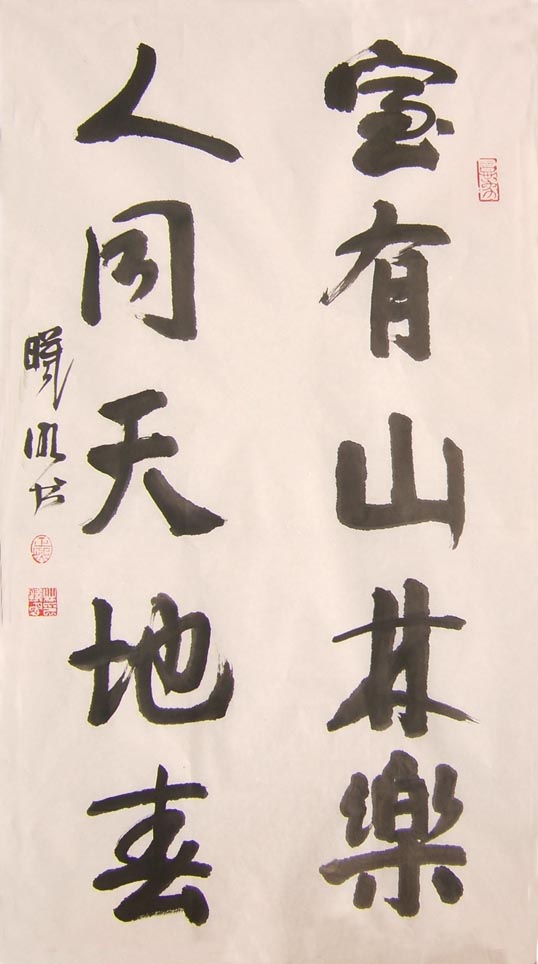 室有山林樂
人同天地春
曉 书